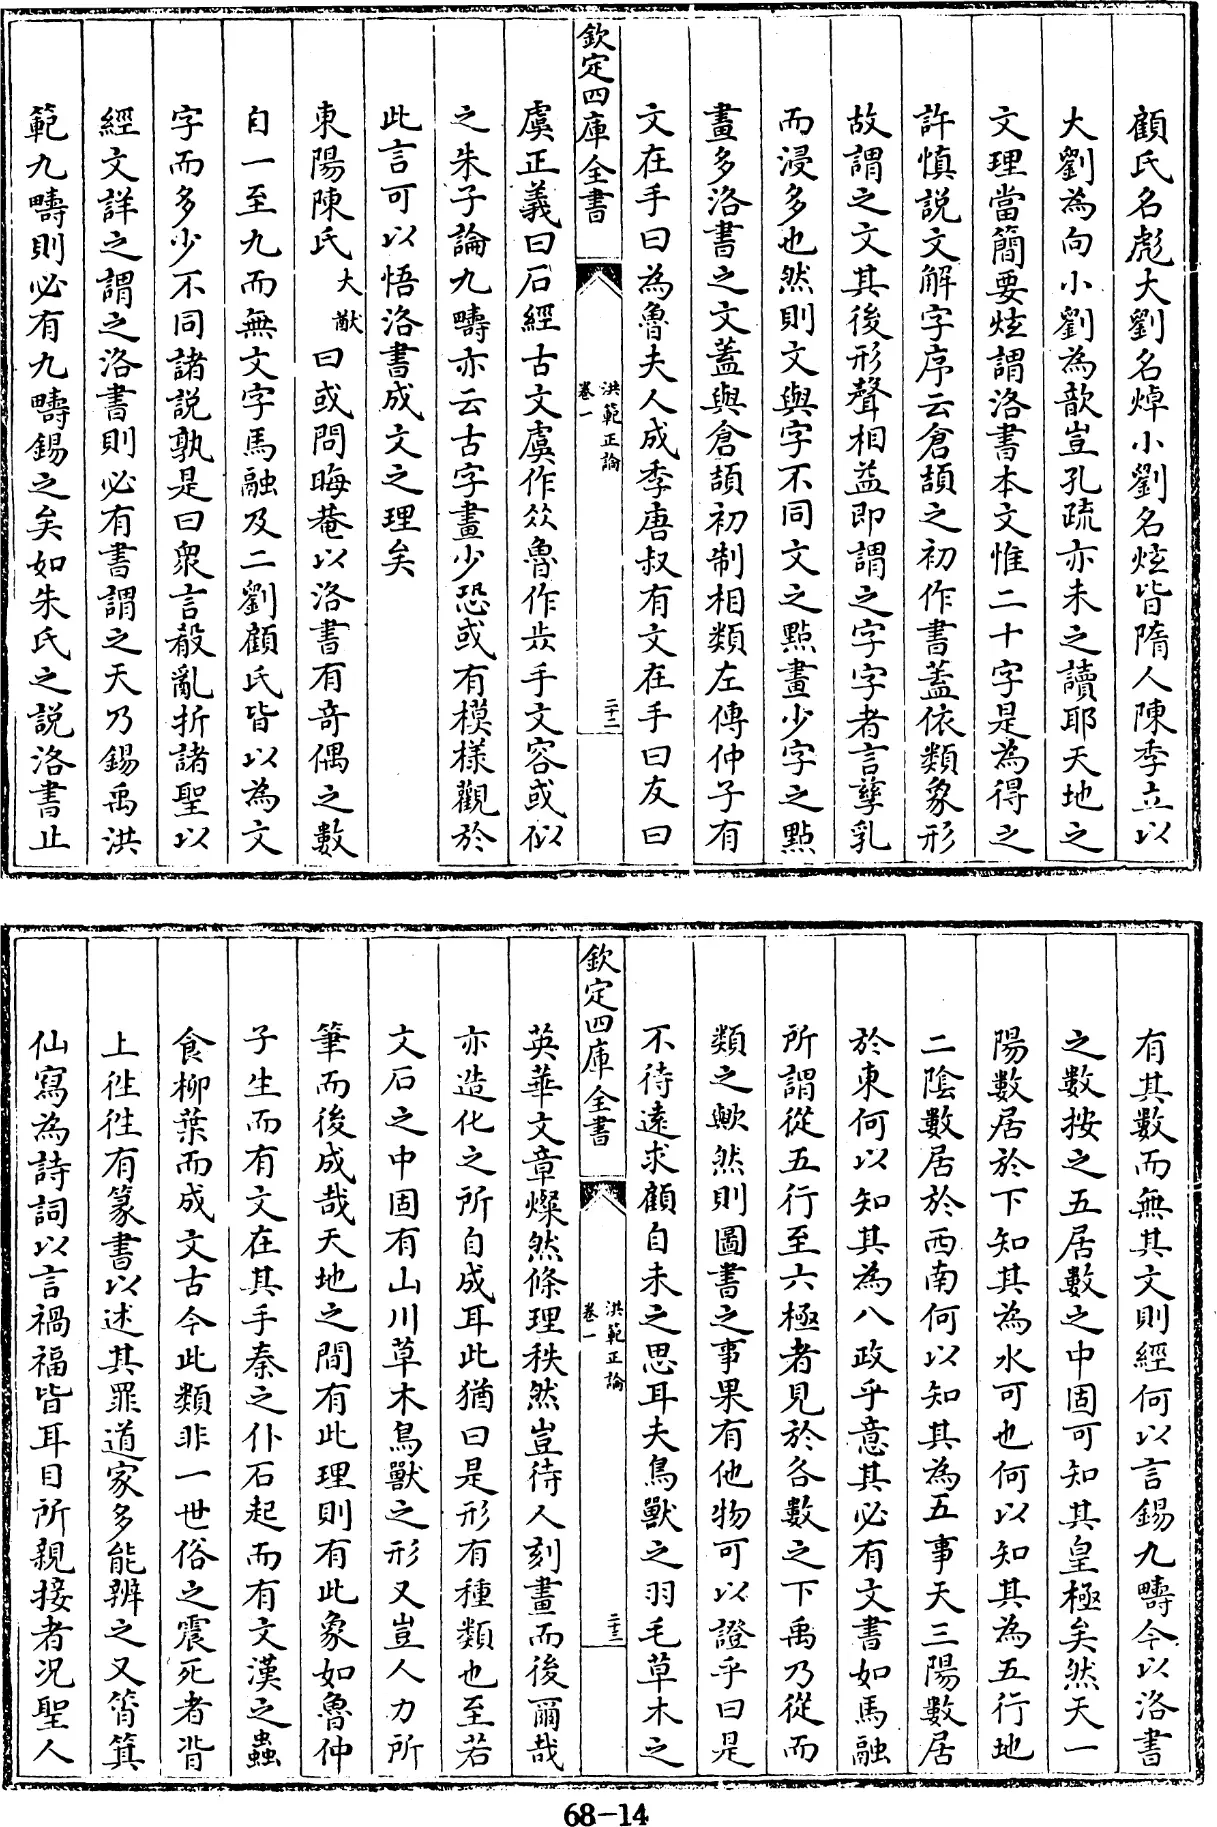 顧氏名彪大劉名焯小劉名炫皆隋人陳季立以
大劉為向小劉為歆豈孔疏亦未之讀耶天地之
文理當簡要炫謂洛書本文惟二十字是為得之
許慎説文解字序云倉頡之初作書蓋依類象形
故謂之文其後形聲相益即謂之字字者言孳乳
而浸多也然則文與字不同文之點畫少字之點
畫多洛書之文蓋與倉頡初制相類左傳仲子有
文在手曰為魯夫人成季唐叔有文在手曰友曰
欽定四庫全書
洪範正論
卷一
二十二
虞正義曰石經古文虞作㕕魯作㞢手文容或似
之朱子論九疇亦云古字畫少恐或有模様觀於
此言可以悟洛書成文之理矣
東陽陳氏大猷曰或問晦菴以洛書有奇偶之數
自一至九而無文字馬融及二劉顧氏皆以為文
字而多少不同諸説孰是曰衆言殽亂折諸聖以
經文詳之謂之洛書則必有書謂之天乃錫禹洪
範九疇則必有九疇錫之矣如朱氏之説洛書止
有其數而無其文則經何以言錫九疇今以洛書
之數按之五居數之中固可知其皇極矣然天一
陽數居於下知其為水可也何以知其為五行地
二陰數居於西南何以知其為五事天三陽數居
於東何以知其為八政乎意其必有文書如馬融
所謂從五行至六極者見於各數之下禹乃從而
類之歟然則圖書之事果有他物可以證乎曰是
不待遠求顧自未之思耳夫鳥獸之羽毛草木之
欽定四庫全書
洪範正論
卷一
二十三
英華文章燦然條理秩然豈待人刻畫而後爾哉
亦造化之所自成耳此猶曰是形有種類也至若
文石之中固有山川草木鳥獸之形又豈人力所
筆而後成哉天地之間有此理則有此象如魯仲
子生而有文在其手秦之仆石起而有文漢之蟲
食柳葉而成文古今此類非一世俗之震死者背
上徃徃有篆書以述其罪道家多能辨之又箕
仙寫為詩詞以言禍福皆耳目所親接者况聖人
68-14